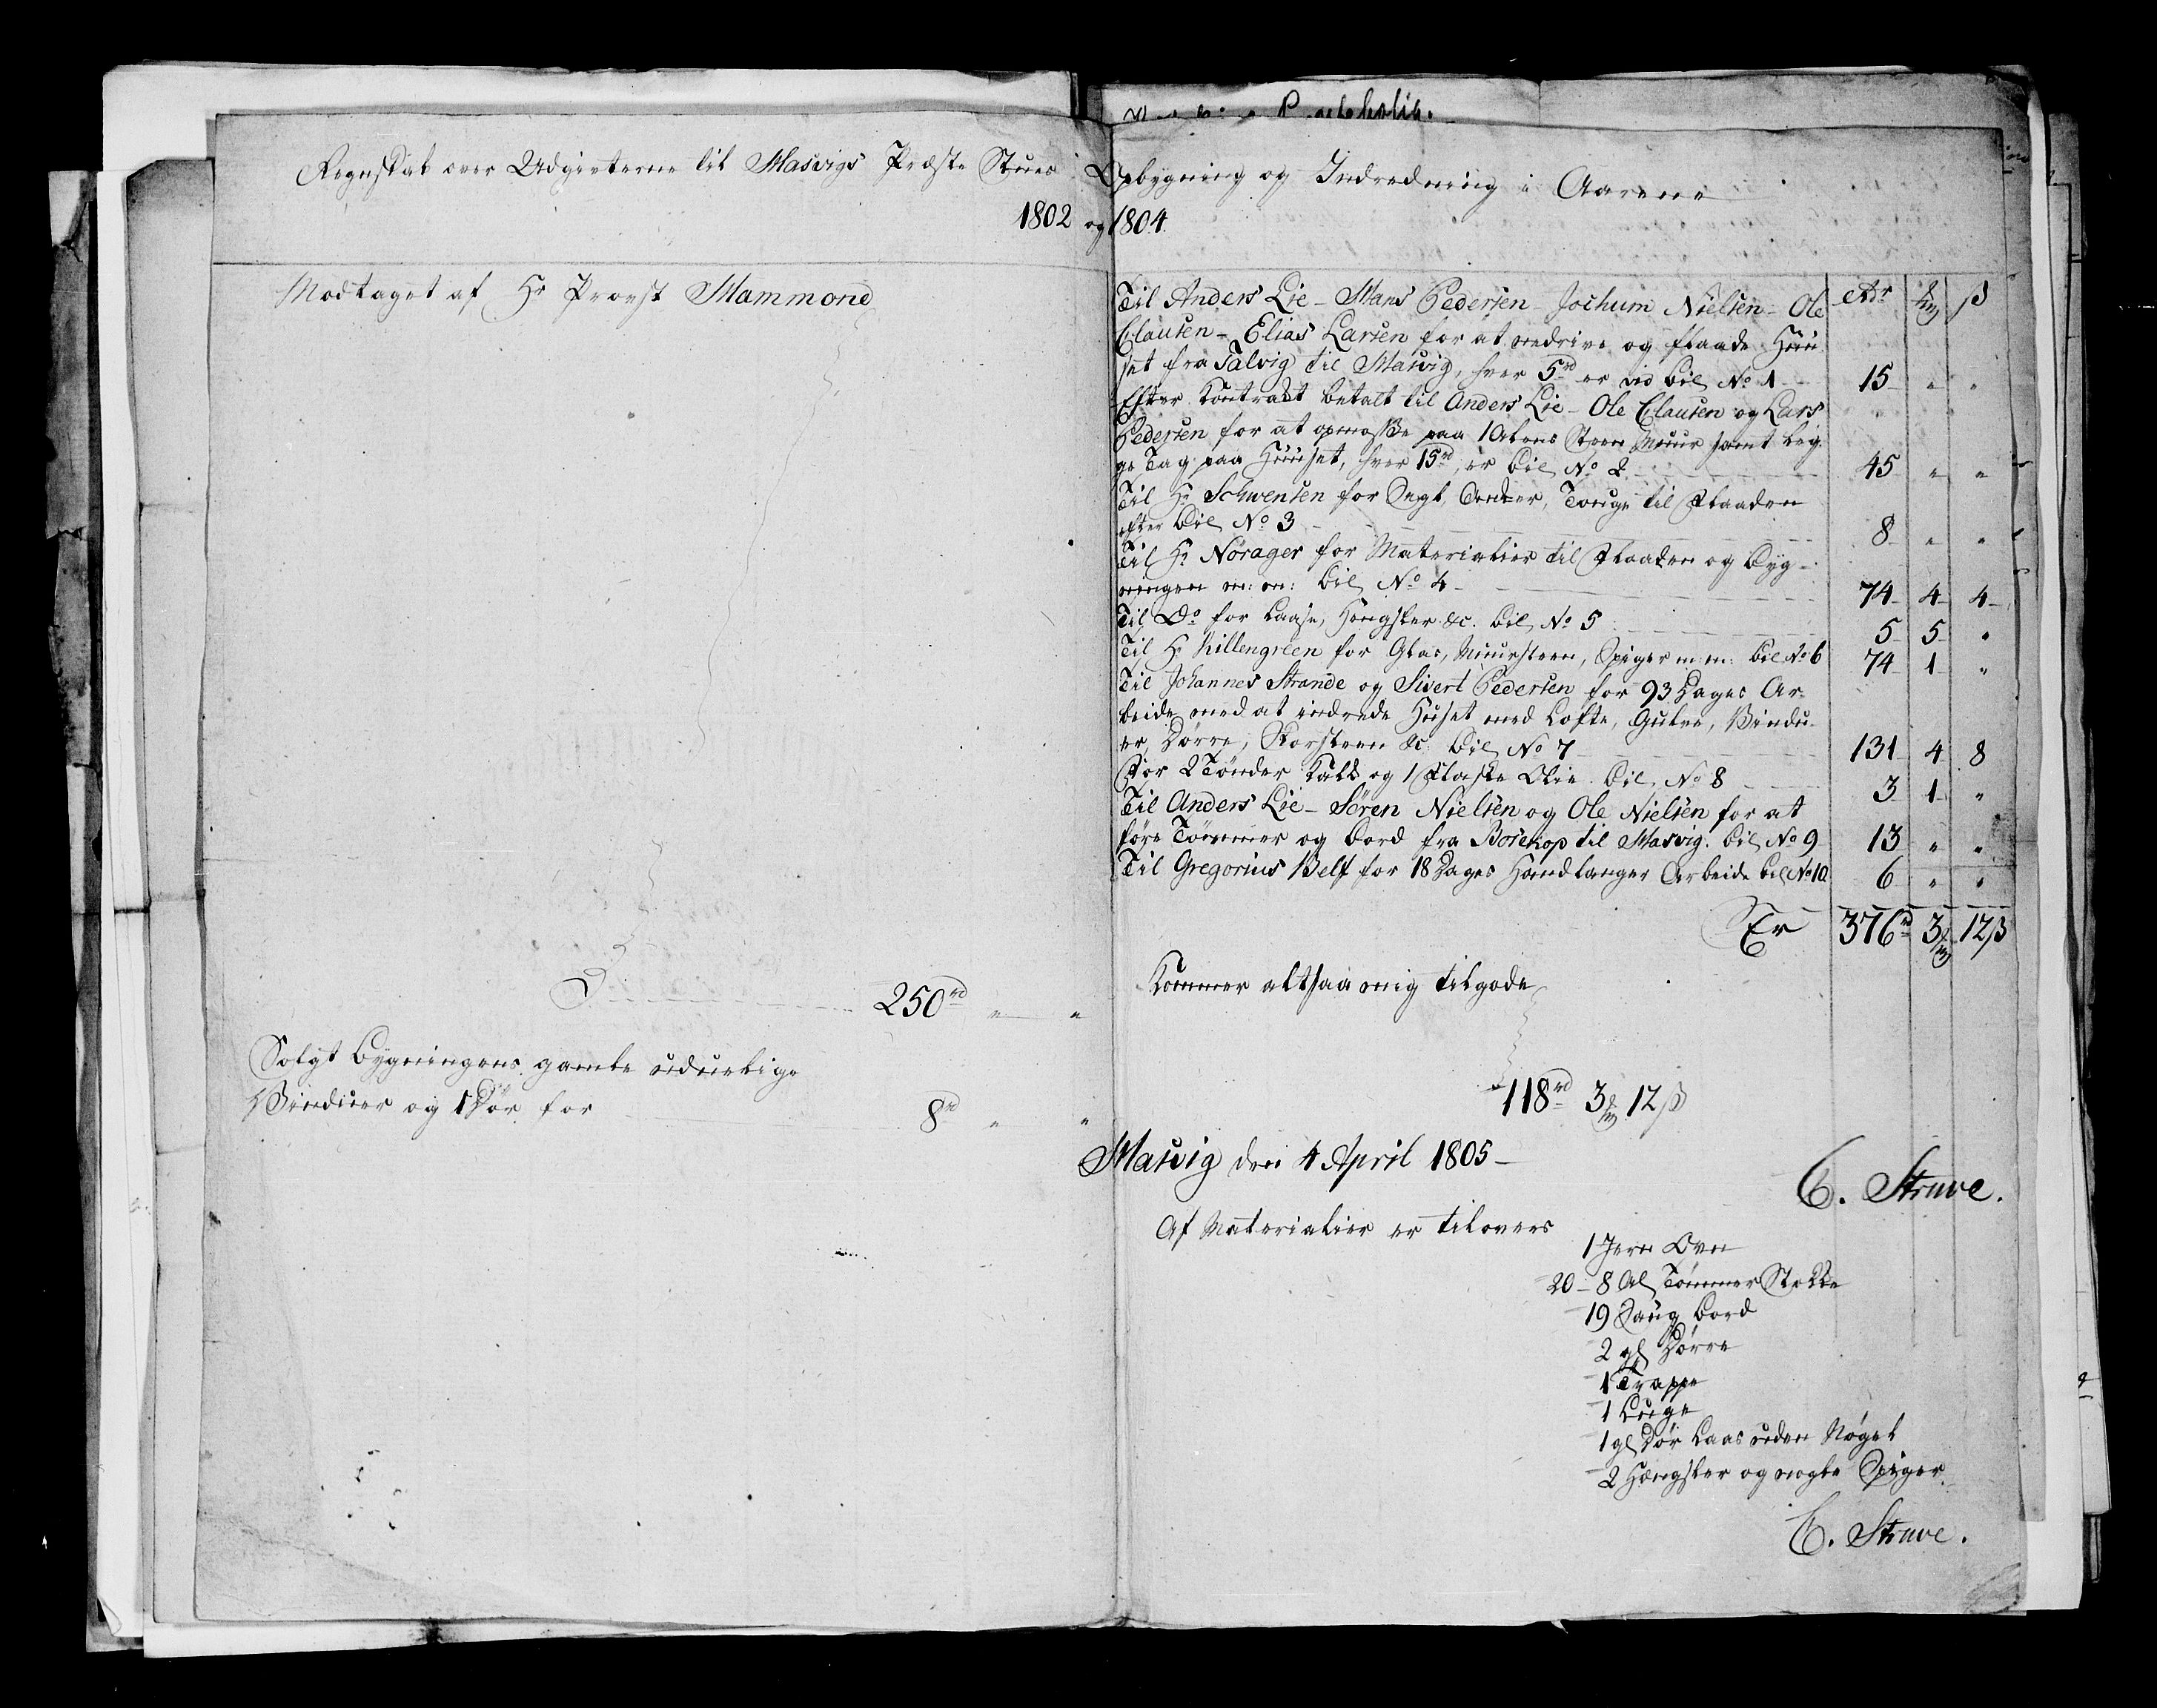 Regnskab over Udgivterne til Masvigs Præste Stues Opbygning og Indredning i Aarene
1802 og 1804.
Modtaget af Hr Provst Hammond
250rd " "
Solgt Bygningens gamle uduelige
Vinduer og 1 Dør for 8rd " "
Rdr mk ß
Til Anders Lie - Hans Pedersen - Jochum Nielsen - Ole
Clausen - Elias Larsen for at nedrive og flaade Huu-
set fra Talvig til Masvig, hver 5rd er vid Bil. No 1 15 " "
Efter Kontrakt betalt til Anders Lie - Ole Clausen og Lars
Pedersen for at opmosse paa 1 Alens Steen Muur samt leg-
ge Tag paa Huuset, hver 15rd, er Bil. No 2 45 " "
Til Hr Schwensen for Segl, Anker, Touge til Flaaden
efter Bil. No 3 8 " "
Til Hr Norager for Materialier til Flaaden og Byg-
ningen m: m: Bil. No 4 74 4 4
Til Do for Laase, Hengsler &c. Bil. No 5 5 5 "
Til Hr Killengreen for Glas, Muursteen, Spiger m: m: Bil. No 6 74 1 "
Til Johannes Strande og Sivert Pedersen for 93 Dages Ar-
beide med at indrede Huset med Lofte, Gulve, Vindu-
er, Dørre, Skorsteen &c. Bil. No 7 131 4 8
For 2 Tønder Kalk og 1 Flaske Olie Bil. No 8 3 1 "
Til Anders Lie - Sören Nielsen og Ole Nielsen for at
føre Tømmer og Bord fra Bosekop til Masvig. Bil. No 9 13 " "
Til Gregorius Belf for 18 Dages Handlanger Arbeide Bil. No 10 6 " "
Er 376rd 3mk 12ß
Kommer altsaa mig tilgode
118rd 3mk 12ß
Masvig den 4 April 1805
C. Struve.
Af Materialier er tilovers
1 Jern Ovn
20 - 8 Al. Tømmer Stokke
19 Saug Bord
2 gl. Dørre
1 Trappe
1 Luge
1 gl. Dør Laas uden Nøgel
2 Hængsler og nogle Spiger.
C. Struve.